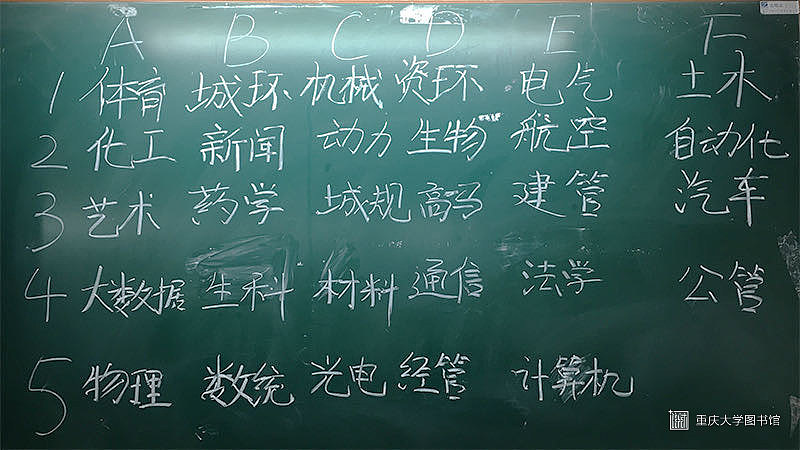 A B C D E F
1 体育 城环 机械 资环 电气 土水
2 化工 新闻 动力 生物 航空 自动化
3 艺术 药学 城规 高马 建管 汽车
4 大数据 生科 材料 通信 法学 公管
5 物理 数统 光电 经管 计算机
重庆大学图书馆